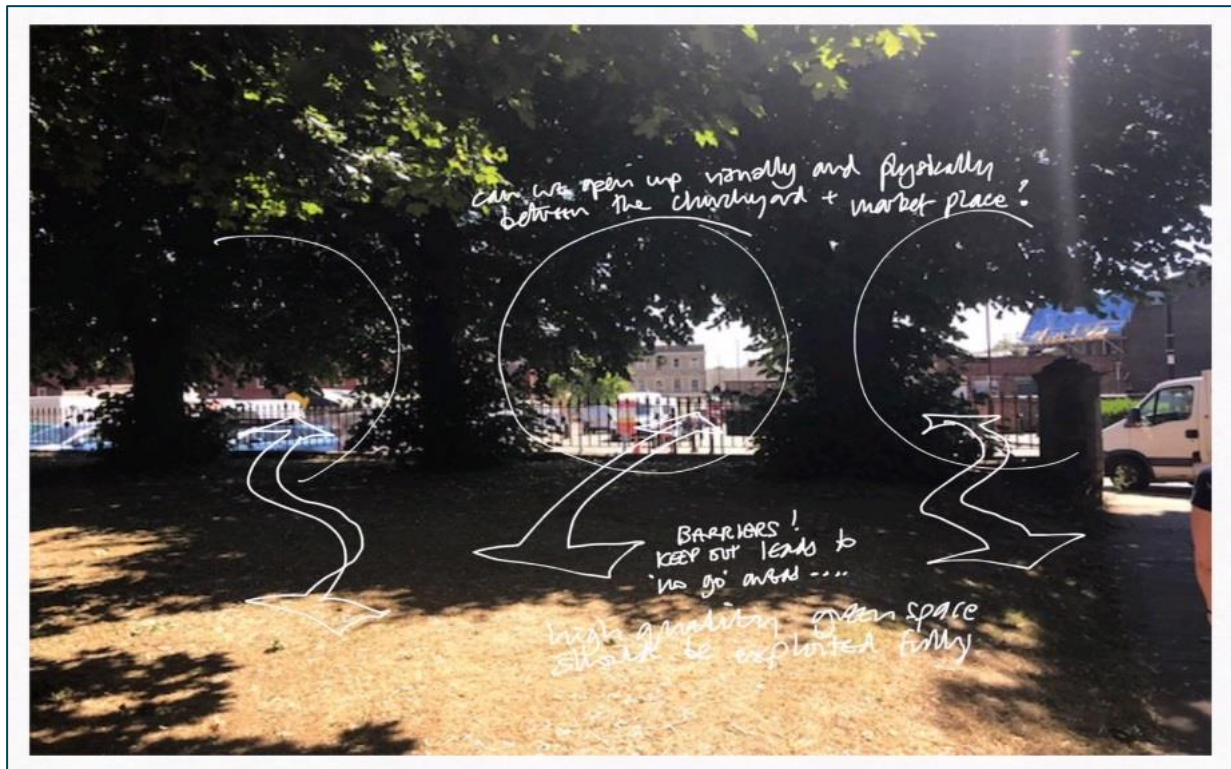 can we open up visually and physically
between the churchyard + market place?
BARRIERS!
KEEP OUT leads to
'no go' areas ....
high quality green space
should be exploited fully